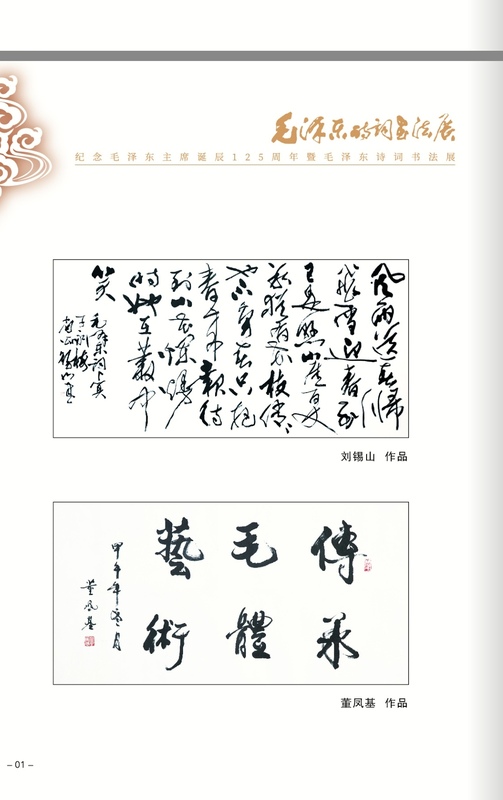 毛泽东诗词书法展
纪念毛泽东主席诞辰125周年暨毛泽东诗词书法展
風雨送春归
飛雪迎春到
已是悬崖百丈
冰犹有花枝俏
也不争春只把
春来报待
到山花烂漫
时她在丛中
笑
毛泽东词卜算
子咏梅
刘锡山 作品
傳承
毛體
藝術
甲午年冬月
董凤基
董凤基 作品
– 01 –